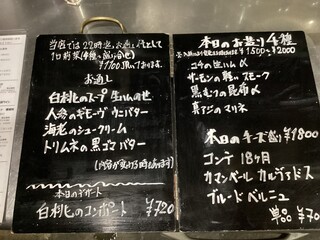 当店では22時迄、お通しとして
1日前菜(4種の盛り合せ)
¥1100頂いております。
お通し
白桃のスープ 生ハムのせ
人参のギモーヴ ウニバター
海老のシュークリーム
トリュフの黒ゴマバター
(内容が変わる時もあります)
本日のデザート
白桃のコンポート ¥720
本日のお盛り4種
¥1500〜¥2000
コウカの生ハム
サーモンの軽いスモーク
黒むつの昆布〆
真アジのマリネ
本日のチーズ盛り¥1800
コンテ 18ヶ月
カマンベール カルヴァドス
ブルー ド ベルニュ
単品 ¥70